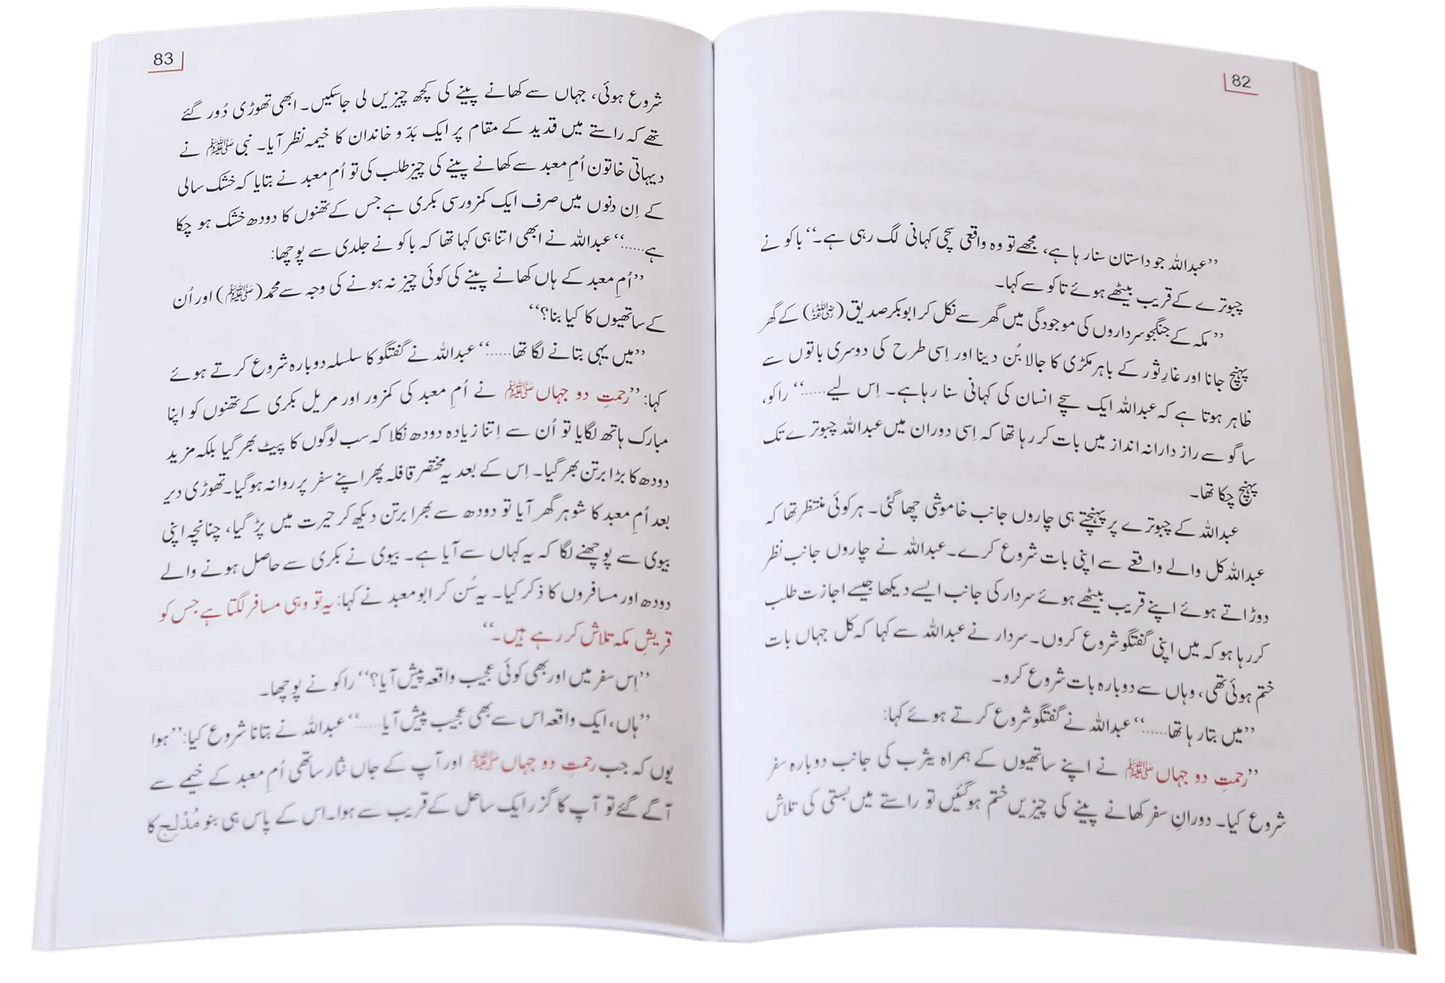 82
’’عبداللہ جو داستان سنا رہا ہے، مجھے تو وہ واقعی سچی کہانی لگ رہی ہے۔‘‘ باکو نے
چبوترے کے قریب بیٹھے ہوئے تاکو سے کہا۔
’’مکہ کے جنگجو سرداروں کی موجودگی میں گھر سے نکل کر ابوبکر صدیق (رضی اللہ عنہ) کے گھر
پہنچ جانا اور غارِ ثور کے باہر مکڑی کا جالا بُن دینا اور اِسی طرح کی دوسری باتوں سے
ظاہر ہوتا ہے کہ عبداللہ ایک سچے انسان کی کہانی سنا رہا ہے۔ اِس لیے......‘‘ راکو،
ساگو سے راز دارانہ انداز میں بات کر رہا تھا کہ اِسی دوران میں عبداللہ چبوترے تک
پہنچ چکا تھا۔
عبداللہ کے چبوترے پر پہنچتے ہی چاروں جانب خاموشی چھا گئی۔ ہر کوئی منتظر تھا کہ
عبداللہ کل والے واقعے سے اپنی بات شروع کرے۔ عبداللہ نے چاروں جانب نظر
دوڑاتے ہوئے اپنے قریب بیٹھے ہوئے سردار کی جانب ایسے دیکھا جیسے اجازت طلب
کر رہا ہو کہ میں اپنی گفتگو شروع کروں۔ سردار نے عبداللہ سے کہا کہ کل جہاں بات
ختم ہوئی تھی، وہاں سے دوبارہ بات شروع کرو۔
’’میں بتا رہا تھا......‘‘ عبداللہ نے گفتگو شروع کرتے ہوئے کہا:
’’رحمتِ دو جہاں ﷺ نے اپنے ساتھیوں کے ہمراہ یثرب کی جانب دوبارہ سفر
شروع کیا۔ دورانِ سفر کھانے پینے کی چیزیں ختم ہو گئیں تو راستے میں بستی کی تلاش
83
شروع ہوئی، جہاں سے کھانے پینے کی کچھ چیزیں لی جا سکیں۔ ابھی تھوڑی دُور گئے
تھے کہ راستے میں قدید کے مقام پر ایک بدّو خاندان کا خیمہ نظر آیا۔ نبی ﷺ نے
دیہاتی خاتون اُمِ معبد سے کھانے پینے کی چیز طلب کی تو اُمِ معبد نے بتایا کہ خشک سالی
کے اِن دنوں میں صرف ایک کمزور سی بکری ہے جس کے تھنوں کا دودھ خشک ہو چکا
ہے......‘‘ عبداللہ نے ابھی اتنا ہی کہا تھا کہ باکو نے جلدی سے پوچھا:
’’اُمِ معبد کے ہاں کھانے پینے کی کوئی چیز نہ ہونے کی وجہ سے محمد (ﷺ) اور اُن
کے ساتھیوں کا کیا بنا؟‘‘
’’میں یہی بتانے لگا تھا......‘‘ عبداللہ نے گفتگو کا سلسلہ دوبارہ شروع کرتے ہوئے
کہا: ’’رحمتِ دو جہاں ﷺ نے اُمِ معبد کی کمزور اور مریل بکری کے تھنوں کو اپنا
مبارک ہاتھ لگایا تو اُن سے اِتنا زیادہ دودھ نکلا کہ سب لوگوں کا پیٹ بھر گیا بلکہ مزید
دودھ کا بڑا برتن بھر گیا۔ اِس کے بعد یہ مختصر قافلہ پھر اپنے سفر پر روانہ ہو گیا۔ تھوڑی دیر
بعد اُمِ معبد کا شوہر گھر آیا تو دودھ سے بھرا برتن دیکھ کر حیرت میں پڑ گیا، چنانچہ اپنی
بیوی سے پوچھنے لگا کہ یہ کہاں سے آیا ہے۔ بیوی نے بکری سے حاصل ہونے والے
دودھ اور مسافروں کا ذکر کیا۔ یہ سُن کر ابو معبد نے کہا: یہ تو وہی مسافر لگتا ہے جس کو
قریشِ مکہ تلاش کر رہے ہیں۔‘‘
’’اِس سفر میں اور بھی کوئی عجیب واقعہ پیش آیا؟‘‘ راکو نے پوچھا۔
’’ہاں، ایک واقعہ اس سے بھی عجیب پیش آیا......‘‘ عبداللہ نے بتانا شروع کیا: ’’ہوا
یوں کہ جب رحمتِ دو جہاں ﷺ اور آپ کے جاں نثار ساتھی اُمِ معبد کے خیمے سے
آگے گئے تو آپ کا گزر ایک ساحل کے قریب سے ہوا۔ اس کے پاس ہی بنو مُدْلِج کا